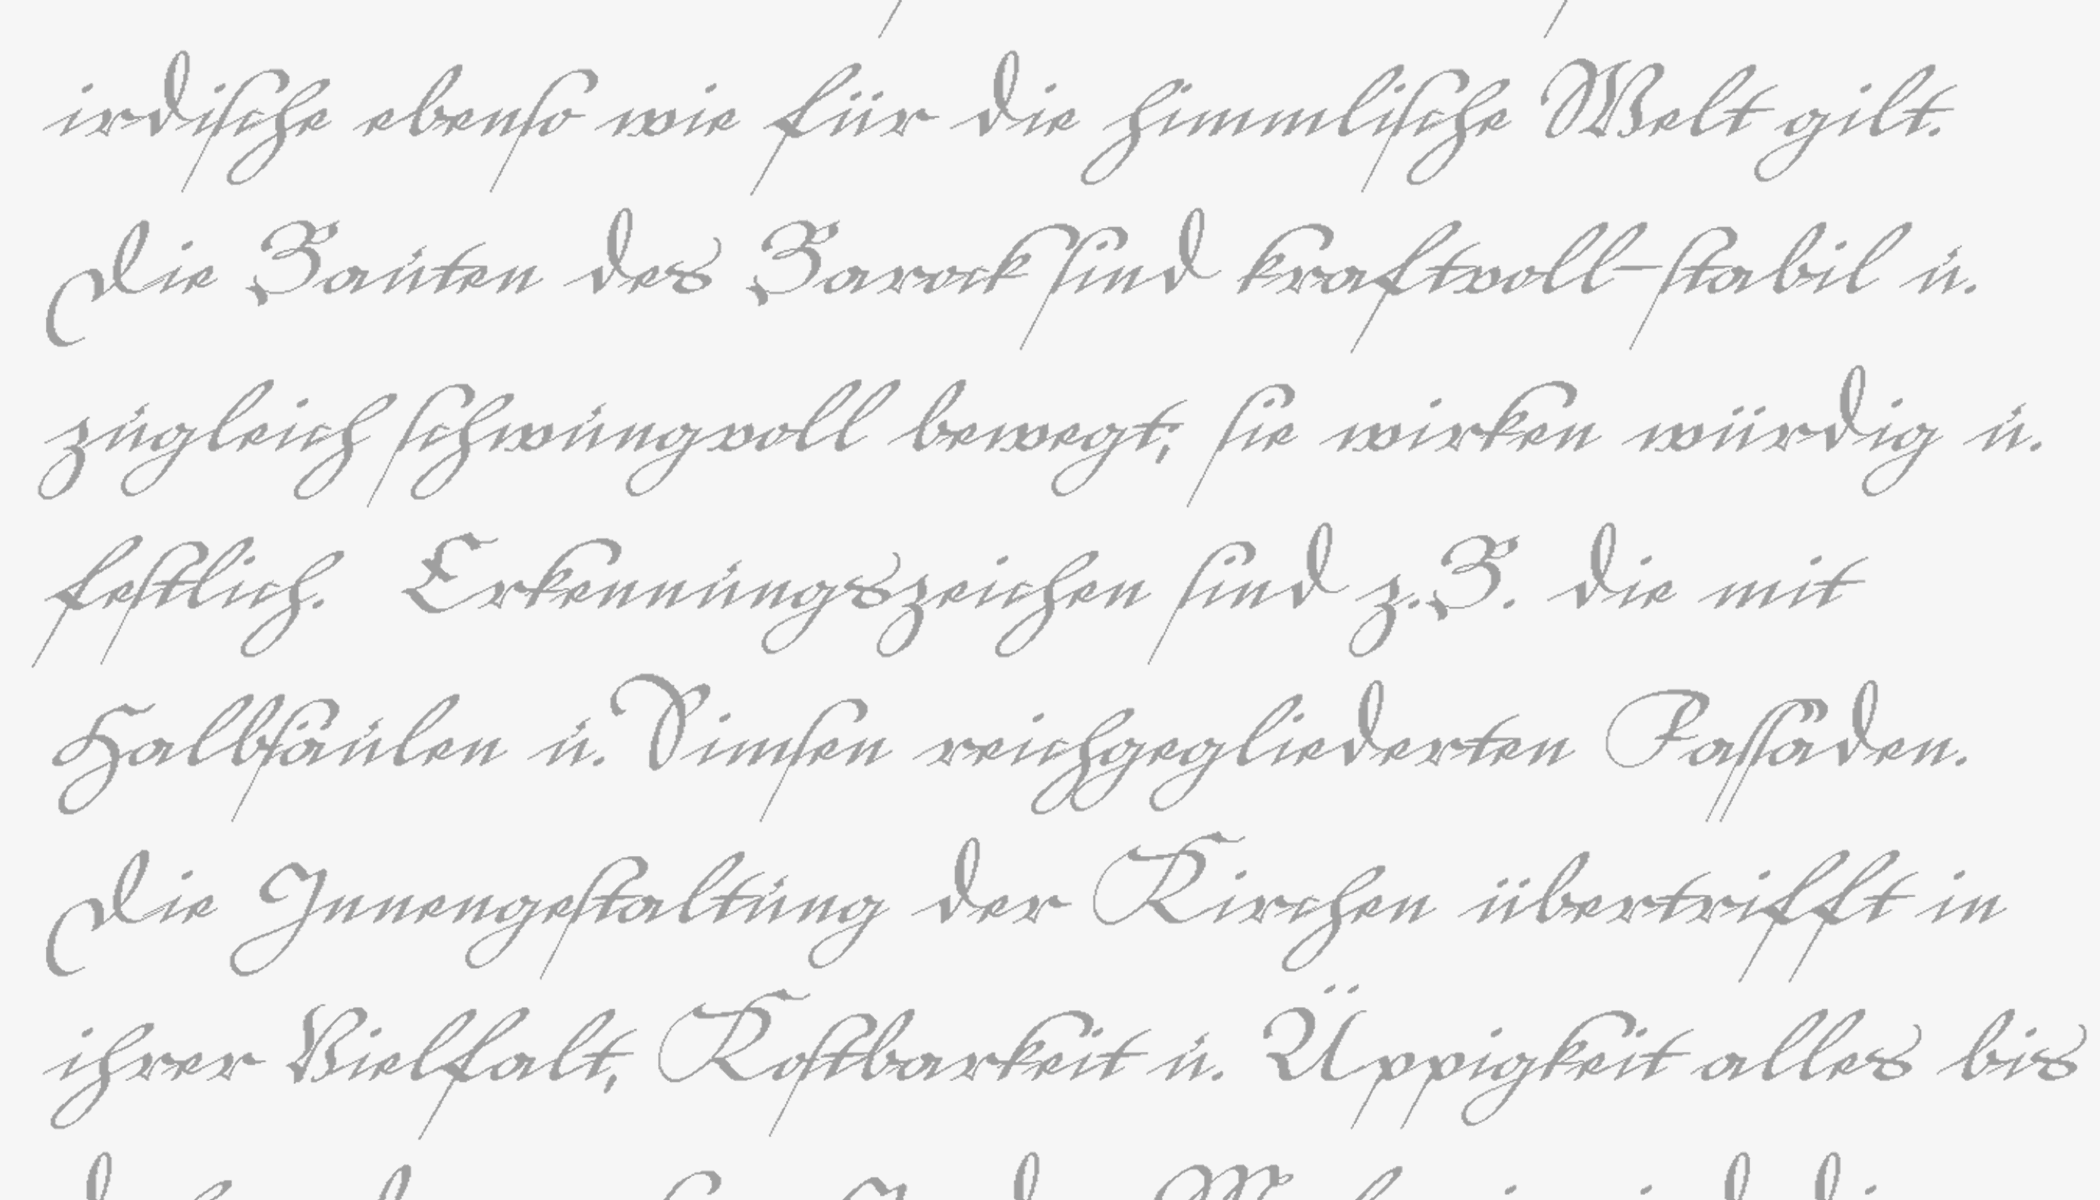 irdische ebenso wie für die himmlische Welt gilt.
Die Bauten des Barock sind kraftvoll-stabil u.
zugleich schwungvoll bewegt; sie wirken würdig u.
festlich. Erkennungszeichen sind z.B. die mit
Halbsäulen u. Simsen reichgegliederten Fassaden.
Die Innengestaltung der Kirchen übertrifft in
ihrer Vielfalt, Kostbarkeit u. Üppigkeit alles bis